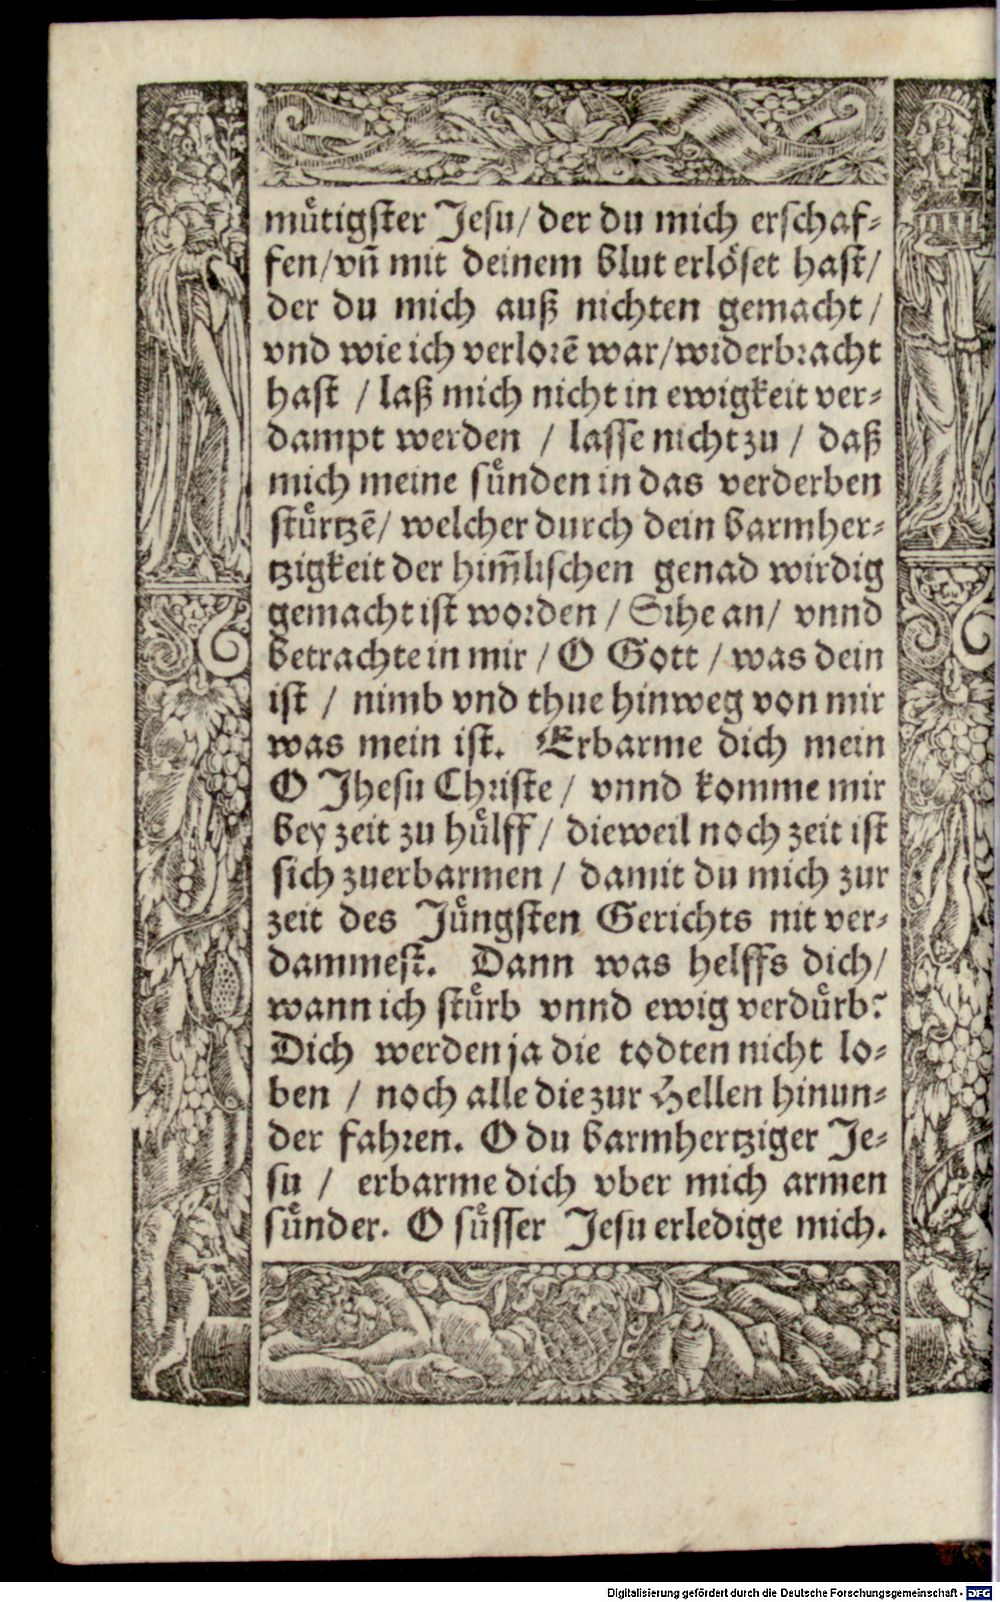 mütigster Jesu/ der du mich erschaf-
fen/vñ mit deinem blut erlöset hast/
der du mich auß nichten gemacht/
vnd wie ich verlorē war/widerbracht
hast / laß mich nicht in ewigkeit ver-
dampt werden / lasse nicht zu / daß
mich meine sünden in das verderben
stürtzē/ welcher durch dein barmher-
tzigkeit der him̃lischen genad wirdig
gemacht ist worden / Sihe an/ vnnd
betrachte in mir / O Gott / was dein
ist / nimb vnd thue hinweg von mir
was mein ist. Erbarme dich mein
O Jhesu Christe / vnnd komme mir
bey zeit zu hülff / dieweil noch zeit ist
sich zuerbarmen / damit du mich zur
zeit des Jüngsten Gerichts nit ver-
dammest. Dann was helffs dich/
wann ich stürb vnnd ewig verdürb?
Dich werden ja die todten nicht lo-
ben / noch alle die zur Hellen hinun-
der fahren. O du barmhertziger Je-
su / erbarme dich vber mich armen
sünder. O süsser Jesu erledige mich.
Digitalisierung gefördert durch die Deutsche Forschungsgemeinschaft - DFG